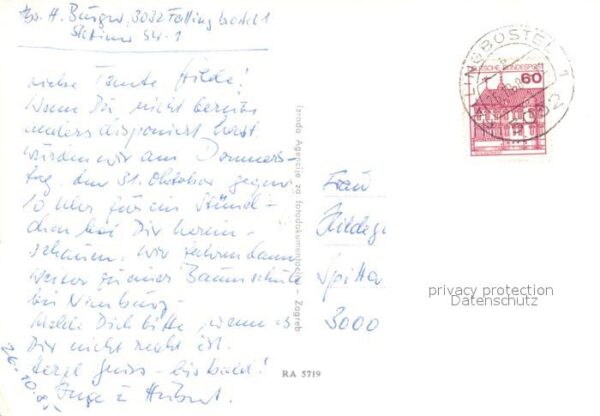 Abs. H. Burger, 3032 Fallingbostel 1
Str. 1
Liebe Tante Hilde!
Wenn Du nicht bereits
anders disponiert hast,
würden wir am Donners-
tag, den 31. Oktober gegen
10 Uhr für ein Stünd-
chen bei Dir herein-
schauen. Wir fahren dann
weiter zu einer Baumschule
bei Nienburg.
Melde Dich bitte, wenn es
Dir nicht recht ist.
Herzl. Gruss - bis bald!
Inge u. Helmut
26.10.
Izrada Agencija za fotodokumentaciju - Zagreb
RA 5719
Frau
Hildeg
Spitta
3000
LINGBOSTEL 1
3032
DEUTSCHE BUNDESPOST
60
privacy protection
Datenschutz